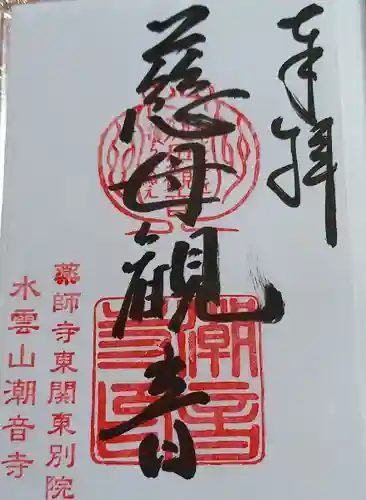 奉拝
慈母観音
薬師寺東関東別院
水雲山潮音寺